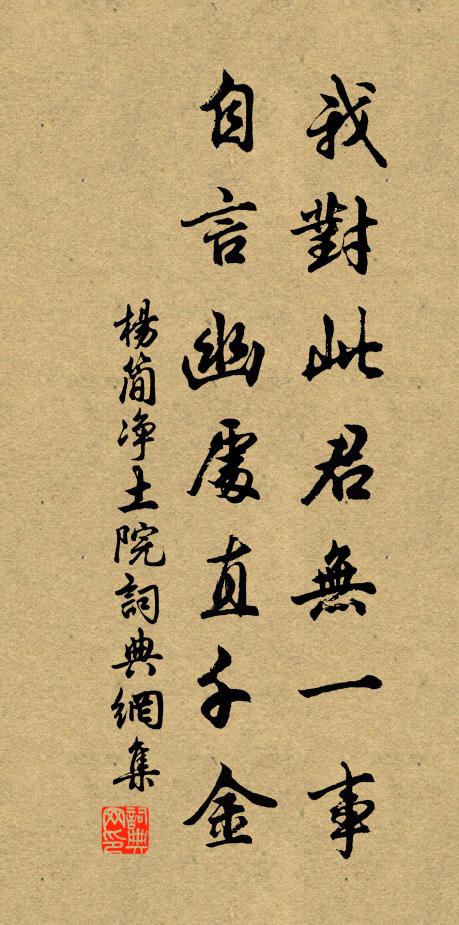 我對此君無一事
自言幽處直千金
楊簡净土院詞典網集
詞典网印